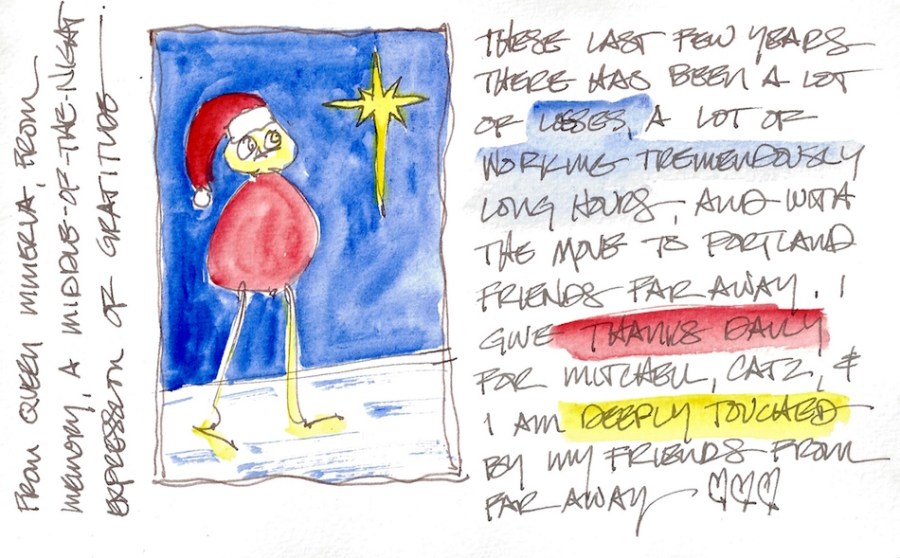 FROM QUEEN MINERVA, FROM
MEMORY, A MIDDLE-OF-THE-NIGHT
EXPRESSION OF GRATITUDE
THESE LAST FEW YEARS
THERE HAS BEEN A LOT
OF LOSSES, A LOT OF
WORKING TREMENDOUSLY
LONG HOURS, AND WITH
THE MOVE TO PORTLAND
FRIENDS FAR AWAY. I
GIVE THANKS DAILY
FOR MITCHELL, CATZ, &
I AM DEEPLY TOUCHED
BY MY FRIENDS FROM
FAR AWAY